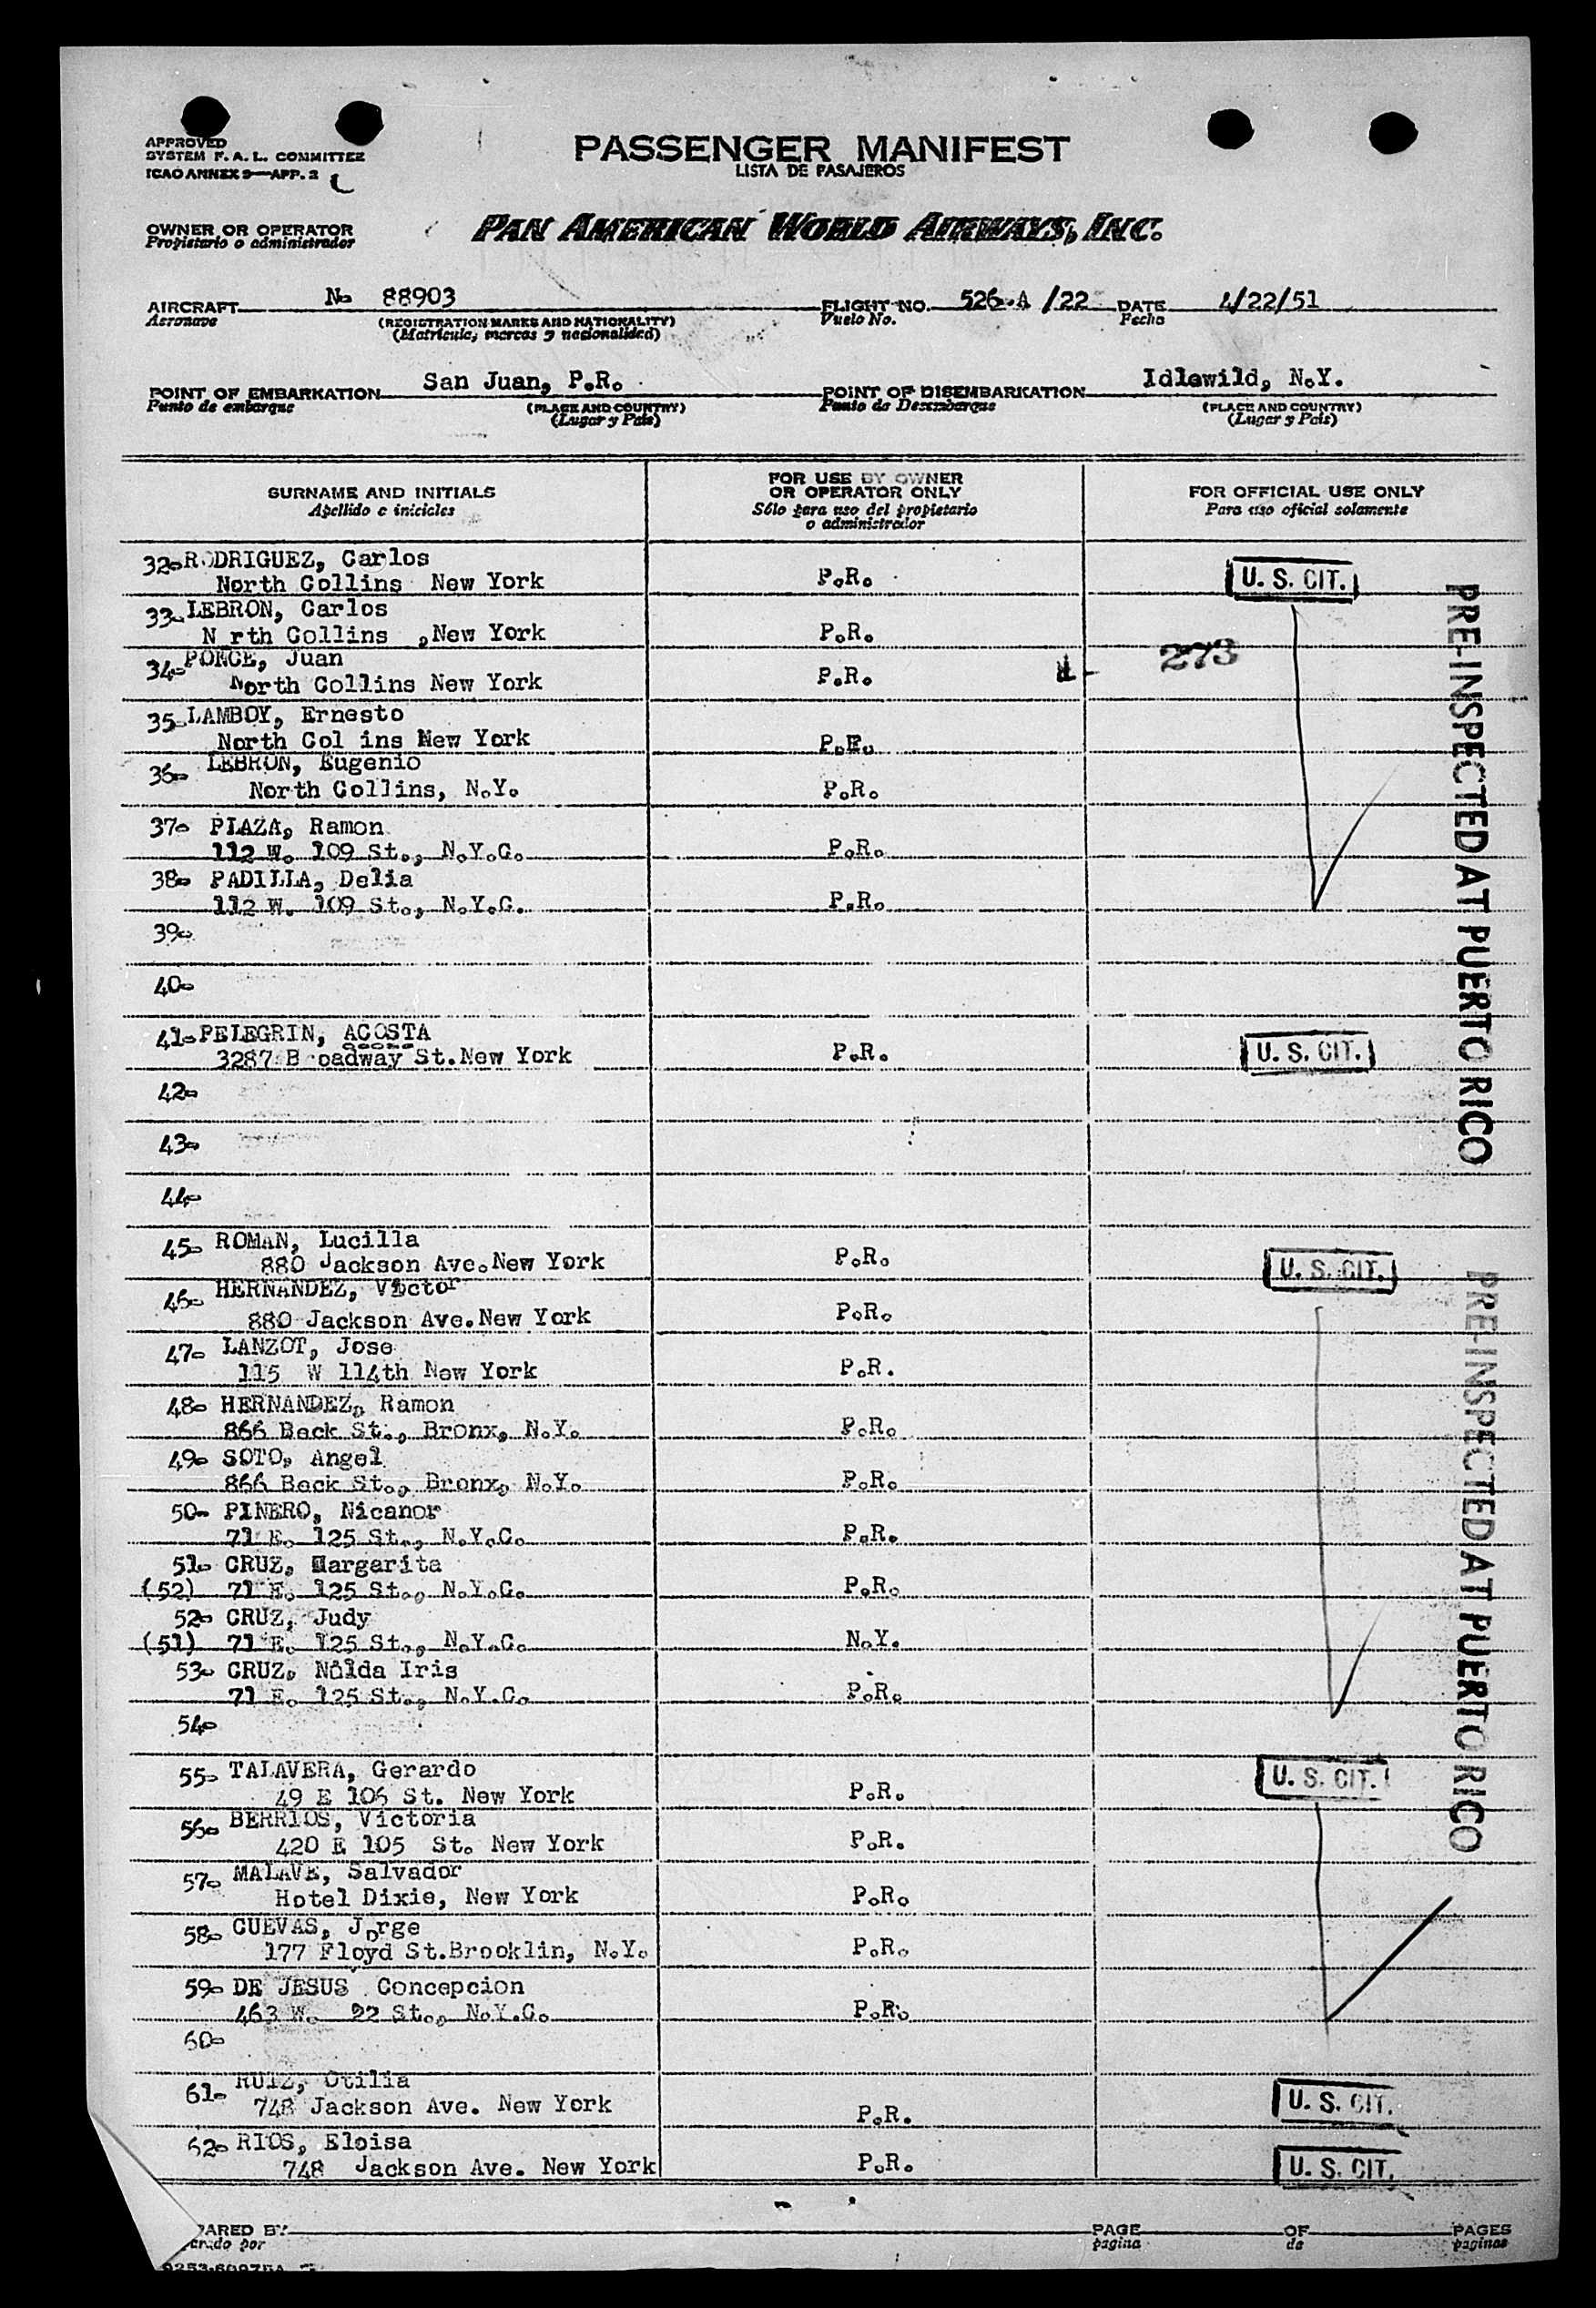 APPROVED
SYSTEM F. A. L. COMMITTEE
ICAO ANNEX 9—APP. 2
PASSENGER MANIFEST
LISTA DE PASAJEROS
OWNER OR OPERATOR
Propietario o administrador
PAN AMERICAN WORLD AIRWAYS, INC.
AIRCRAFT No 88903 FLIGHT NO. 526-A /22 DATE 4/22/51
Aeronave (REGISTRATION MARKS AND NATIONALITY) Vuelo No. Fecha
(Matricula, marcas y nacionalidad)
POINT OF EMBARKATION San Juan, P.R. POINT OF DISEMBARKATION Idlewild, N.Y.
Punto de embarque (PLACE AND COUNTRY) Punto de Desembarque (PLACE AND COUNTRY)
(Lugar y País) (Lugar y País)
SURNAME AND INITIALS FOR USE BY OWNER OR OPERATOR ONLY FOR OFFICIAL USE ONLY
Apellido e iniciales Sólo para uso del propietario o administrador Para uso oficial solamente
32- RODRIGUEZ, Carlos
North Collins New York P.R. U. S. CIT.
33- LEBRON, Carlos
N rth Collins ,New York P.R.
34- PONCE, Juan
North Collins New York P.R. 273
35- LAMBOY, Ernesto
North Col ins New York P.R.
36- LEBRON, Eugenio
North Collins, N.Y. P.R.
37- PLAZA, Ramon
112 W. 109 St., N.Y.C. P.R.
38- PADILLA, Delia
112 W. 109 St., N.Y.C. P.R.
39-
40-
41- PELEGRIN, ACOSTA
3287 Broadway St.New York P.R. U. S. CIT.
42-
43-
44-
PRE-INSPECTED AT PUERTO RICO
45- ROMAN, Lucilla
880 Jackson Ave.New York P.R. U. S. CIT.
46- HERNANDEZ, Victor
880 Jackson Ave.New York P.R.
47- LANZOT, Jose
115 W 114th New York P.R.
48- HERNANDEZ, Ramon
866 Beck St., Bronx, N.Y. P.R.
49- SOTO, Angel
866 Beck St., Bronx, N.Y. P.R.
50- PINERO, Nicanor
71 E. 125 St., N.Y.C. P.R.
51- CRUZ, Margarita
(52) 71 E. 125 St., N.Y.C. P.R.
52- CRUZ, Judy
(51) 71 E. 125 St., N.Y.C. N.Y.
53- CRUZ, Nilda Iris
71 E. 125 St., N.Y.C. P.R.
54-
55- TALAVERA, Gerardo
49 E 106 St. New York P.R. U. S. CIT.
56- BERRIOS, Victoria
420 E 105 St. New York P.R.
PRE-INSPECTED AT PUERTO RICO
57- MALAVE, Salvador
Hotel Dixie, New York P.R.
58- CUEVAS, Jorge
177 Floyd St.Brooklin, N.Y. P.R.
59- DE JESUS Concepcion
463 W. 22 St., N.Y.C. P.R.
60-
61- RUIZ, Otilia
748 Jackson Ave. New York P.R. U. S. CIT.
62- RIOS, Eloisa
748 Jackson Ave. New York P.R. U. S. CIT.
PARED BY PAGE OF PAGES
arado por pagina de paginas